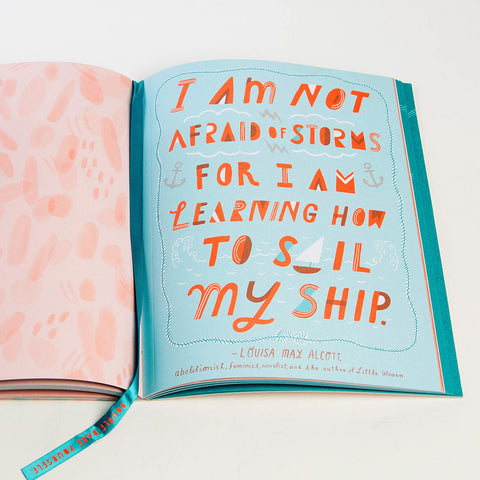 I AM NOT
AFRAID OF STORMS
FOR I AM
LEARNING HOW
TO SAIL
MY SHIP.
- LOUISA MAY ALCOTT,
abolitionist, feminist, novelist, and the author of Little Women
YOURSELF